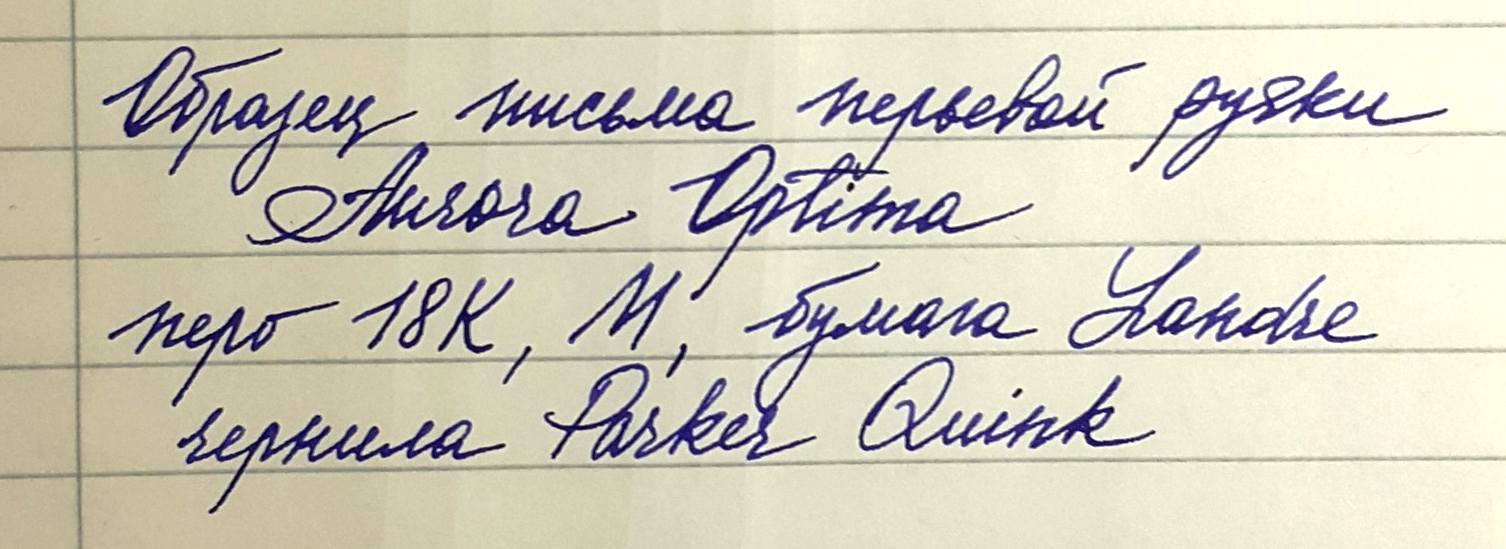 Образец письма перьевой ручки
Aurora Optima
перо 18К, М, бумага Landre
чернила Parker Quink